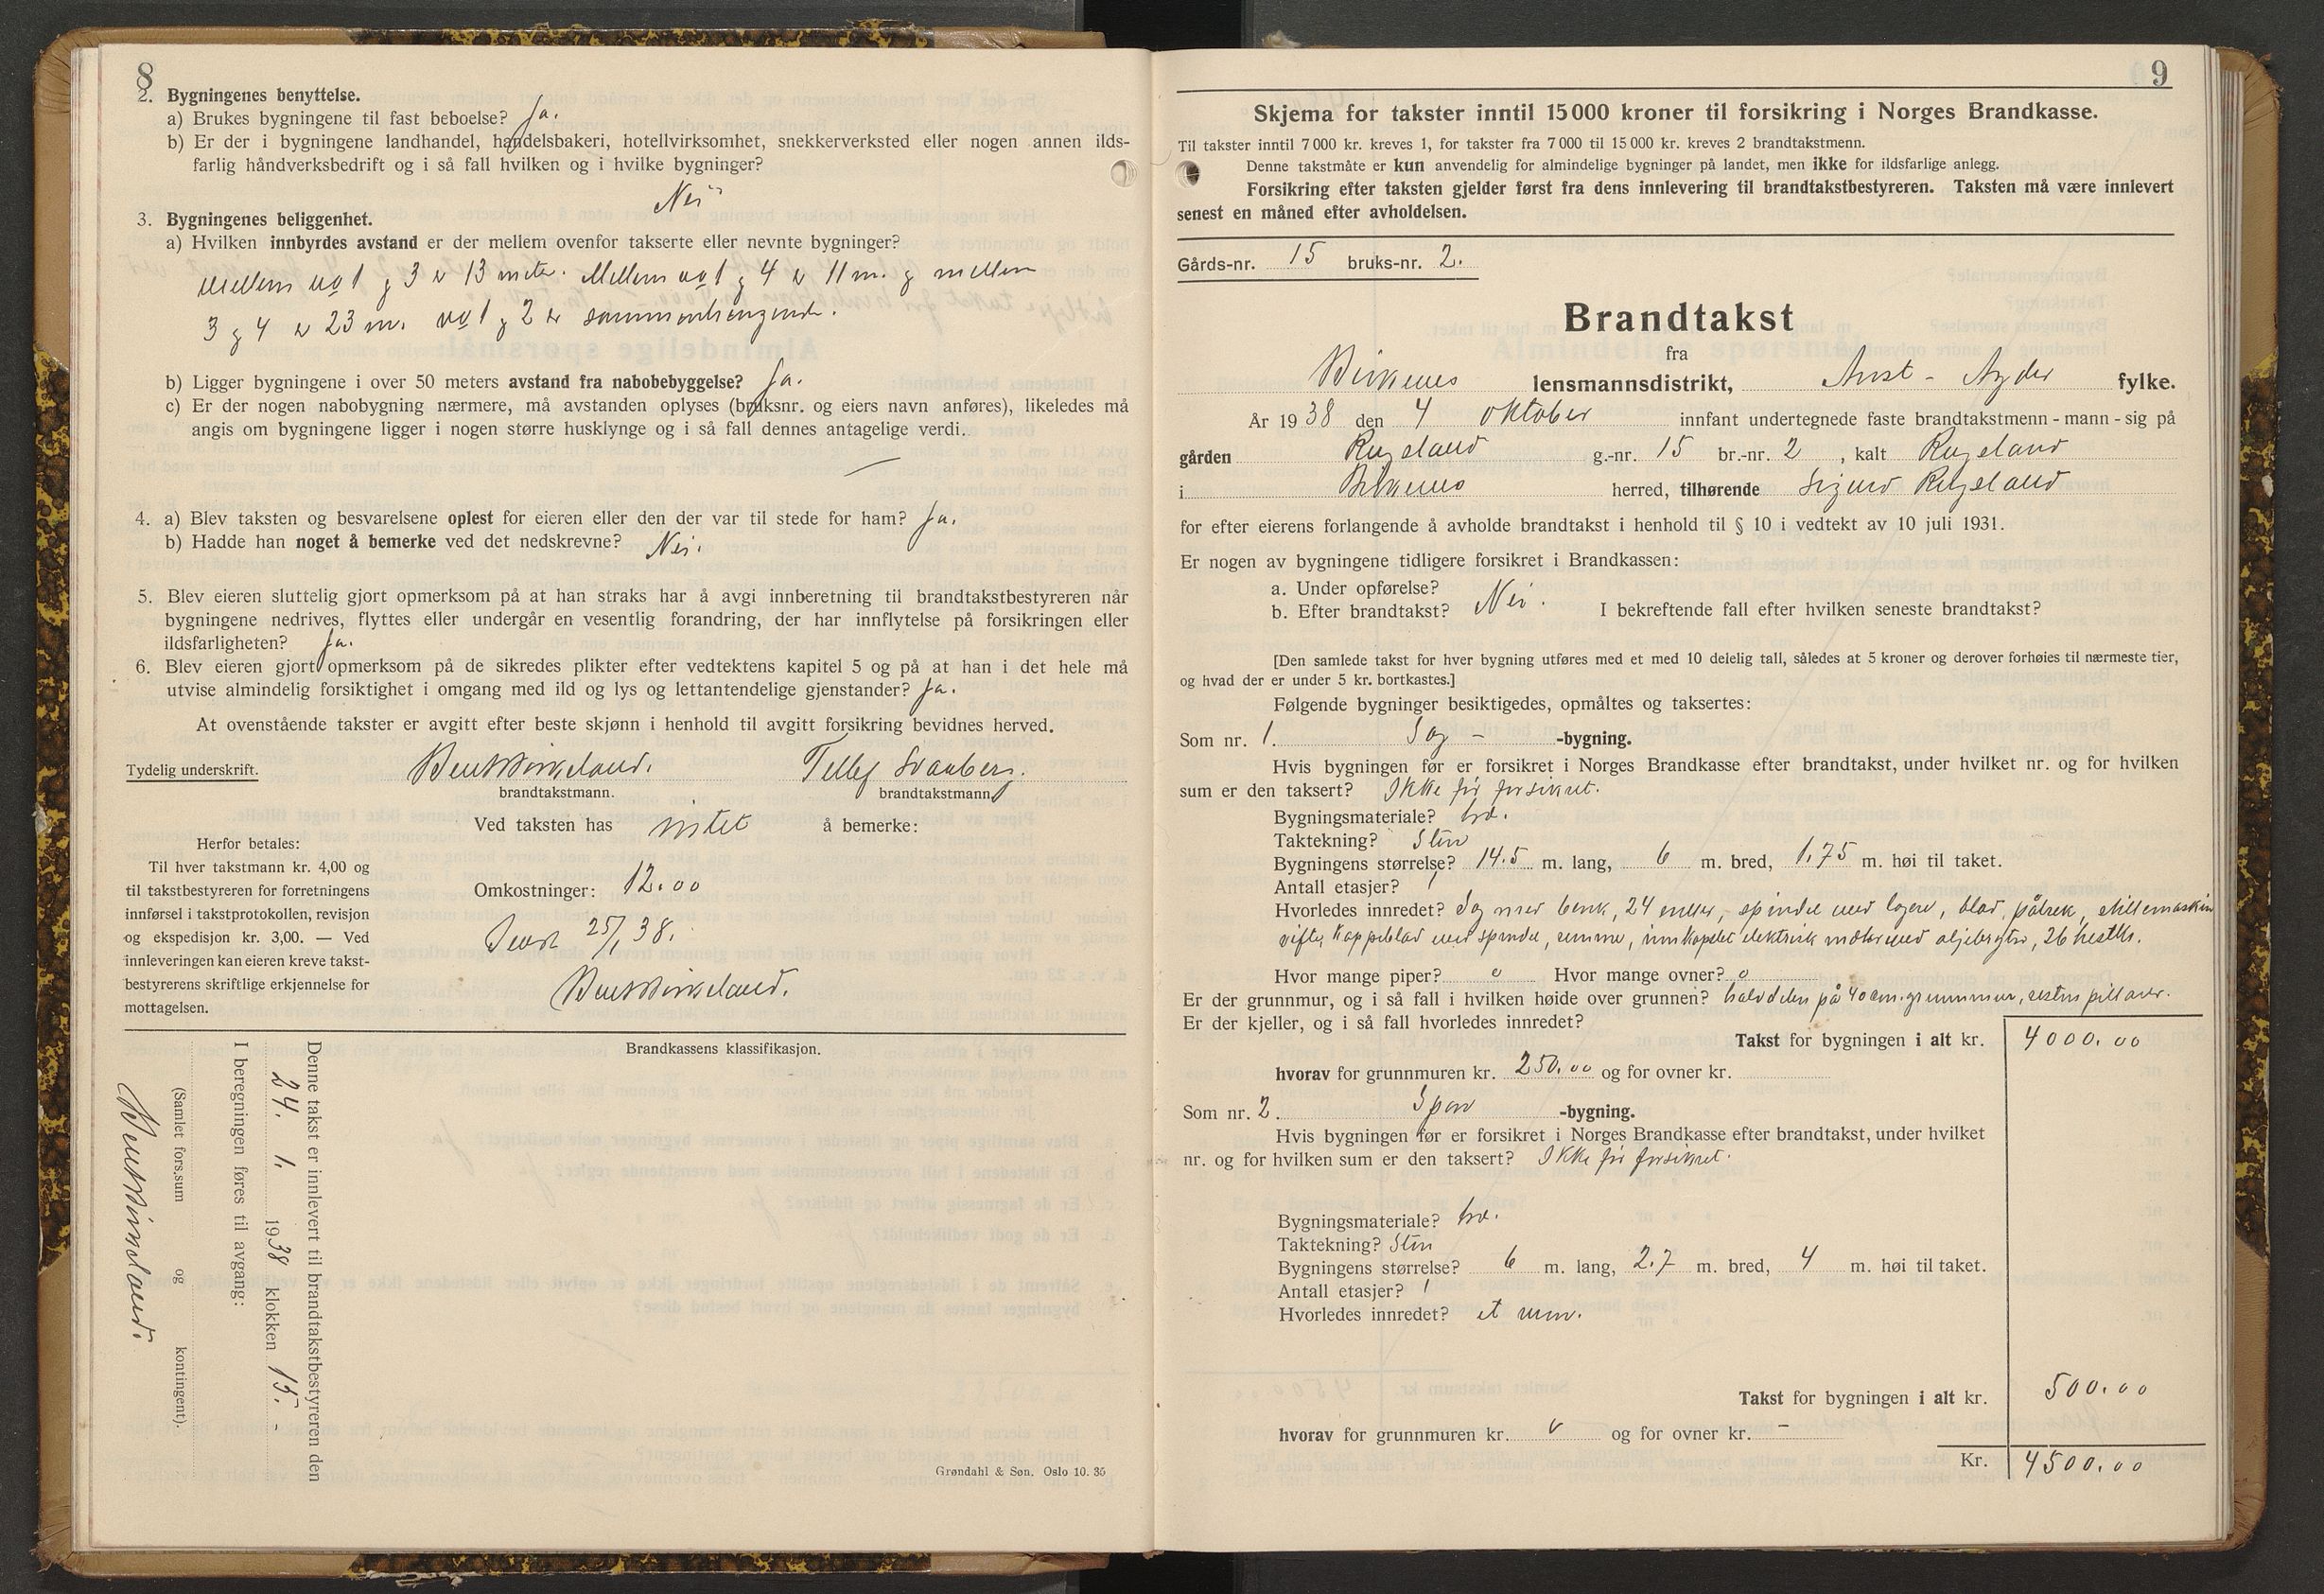 8
2. Bygningenes benyttelse.
a) Brukes bygningene til fast beboelse? Ja.
b) Er der i bygningene landhandel, handelsbakeri, hotellvirksomhet, snekkerverksted eller nogen annen ilds-
farlig håndverksbedrift og i så fall hvilken og i hvilke bygninger?
Nei
3. Bygningenes beliggenhet.
a) Hvilken innbyrdes avstand er der mellem ovenfor takserte eller nevnte bygninger?
Mellem no 1 og 3 er 13 meter. Mellem no 1 og 4 er 11 m. og mellem
3 og 4 er 23 m. no 1 og 2 er sammenhengende.
b) Ligger bygningene i over 50 meters avstand fra nabobebyggelse? Ja.
c) Er der nogen nabobygning nærmere, må avstanden oplyses (bruksnr. og eiers navn anføres), likeledes må
angis om bygningene ligger i nogen større husklynge og i så fall dennes antagelige verdi.
—
4. a) Blev taksten og besvarelsene oplest for eieren eller den der var til stede for ham? Ja.
b) Hadde han noget å bemerke ved det nedskrevne? Nei.
5. Blev eieren sluttelig gjort opmerksom på at han straks har å avgi innberetning til brandtakstbestyreren når
bygningene nedrives, flyttes eller undergår en vesentlig forandring, der har innflytelse på forsikringen eller
ildsfarligheten? Ja.
6. Blev eieren gjort opmerksom på de sikredes plikter efter vedtektens kapitel 5 og på at han i det hele må
utvise almindelig forsiktighet i omgang med ild og lys og lettantendelige gjenstander? Ja.
At ovenstående takster er avgitt efter beste skjønn i henhold til avgitt forsikring bevidnes herved.
Tydelig underskrift. Bent Birkeland. Tellef Svaaberg.
brandtakstmann. brandtakstmann
Ved taksten has intet å bemerke:
Herfor betales:
Til hver takstmann kr. 4,00 og
til takstbestyreren for forretningens
innførsel i takstprotokollen, revisjon
og ekspedisjon kr. 3,00. — Ved
innleveringen kan eieren kreve takst-
bestyrerens skriftlige erkjennelse for
mottagelsen.
Omkostninger: 12.00
25/1 38.
Bent Birkeland.
Brandkassens klassifikasjon.
Denne takst er innlevert til brandtakstbestyreren den
24. 1. 1938 klokken 15. -
I beregningen føres til avgang:
(Samlet fors.sum og kontingent).
Bent Birkeland.
Grøndahl & Søn. Oslo 10. 35
9
Skjema for takster inntil 15 000 kroner til forsikring i Norges Brandkasse.
Til takster inntil 7 000 kr. kreves 1, for takster fra 7 000 til 15 000 kr. kreves 2 brandtakstmenn.
Denne takstmåte er kun anvendelig for almindelige bygninger på landet, men ikke for ildsfarlige anlegg.
Forsikring efter taksten gjelder først fra dens innlevering til brandtakstbestyreren. Taksten må være innlevert
senest en måned efter avholdelsen.
Gårds-nr. 15 bruks-nr. 2.
Brandtakst
fra
Birkenes lensmannsdistrikt, Aust-Agder fylke.
År 1938 den 4 oktober innfant undertegnede faste brandtakstmenn - mann - sig på
gården Rugsland g.-nr. 15 br.-nr. 2, kalt Rugsland
i Birkenes herred, tilhørende Sigurd Rugsland
for efter eierens forlangende å avholde brandtakst i henhold til § 10 i vedtekt av 10 juli 1931.
Er nogen av bygningene tidligere forsikret i Brandkassen:
a. Under opførelse?
b. Efter brandtakst? Nei. I bekreftende fall efter hvilken seneste brandtakst?
[Den samlede takst for hver bygning utføres med et med 10 delelig tall, således at 5 kroner og derover forhøies til nærmeste tier,
og hvad der er under 5 kr. bortkastes.]
Følgende bygninger besiktigedes, opmåltes og taksertes:
Som nr. 1. Sag - -bygning.
Hvis bygningen før er forsikret i Norges Brandkasse efter brandtakst, under hvilket nr. og for hvilken
sum er den taksert? Ikke før forsikret.
Bygningsmateriale? tre.
Taktekning? Sten
Bygningens størrelse? 14.5 m. lang, 6 m. bred, 1.75 m. høi til taket.
Antall etasjer? 1
Hvorledes innredet? Sag med benk, 24 ruller, spindel med lagere, blad, påtrek, stillemaskin
vifte, kappeblad med spindel, remme, innkapslet elektrisk motor med oljebryter, 26 hestkr.
Hvor mange piper? 0 Hvor mange ovner? 0
Er der grunnmur, og i så fall i hvilken høide over grunnen? halvdelen på 40 cm. grunnmur, resten pillarer.
Er der kjeller, og i så fall hvorledes innredet?
Takst for bygningen i alt kr. 4000.00
hvorav for grunnmuren kr. 250.00 og for ovner kr.
Som nr. 2. Spon -bygning.
Hvis bygningen før er forsikret i Norges Brandkasse efter brandtakst, under hvilket
nr. og for hvilken sum er den taksert? Ikke før forsikret.
Bygningsmateriale? tre.
Taktekning? Sten
Bygningens størrelse? 6 m. lang, 2.7 m. bred, 4 m. høi til taket.
Antall etasjer? 1
Hvorledes innredet? et rum.
Takst for bygningen i alt kr. 500.00
hvorav for grunnmuren kr. 0 og for ovner kr. -
Kr. 4500.00